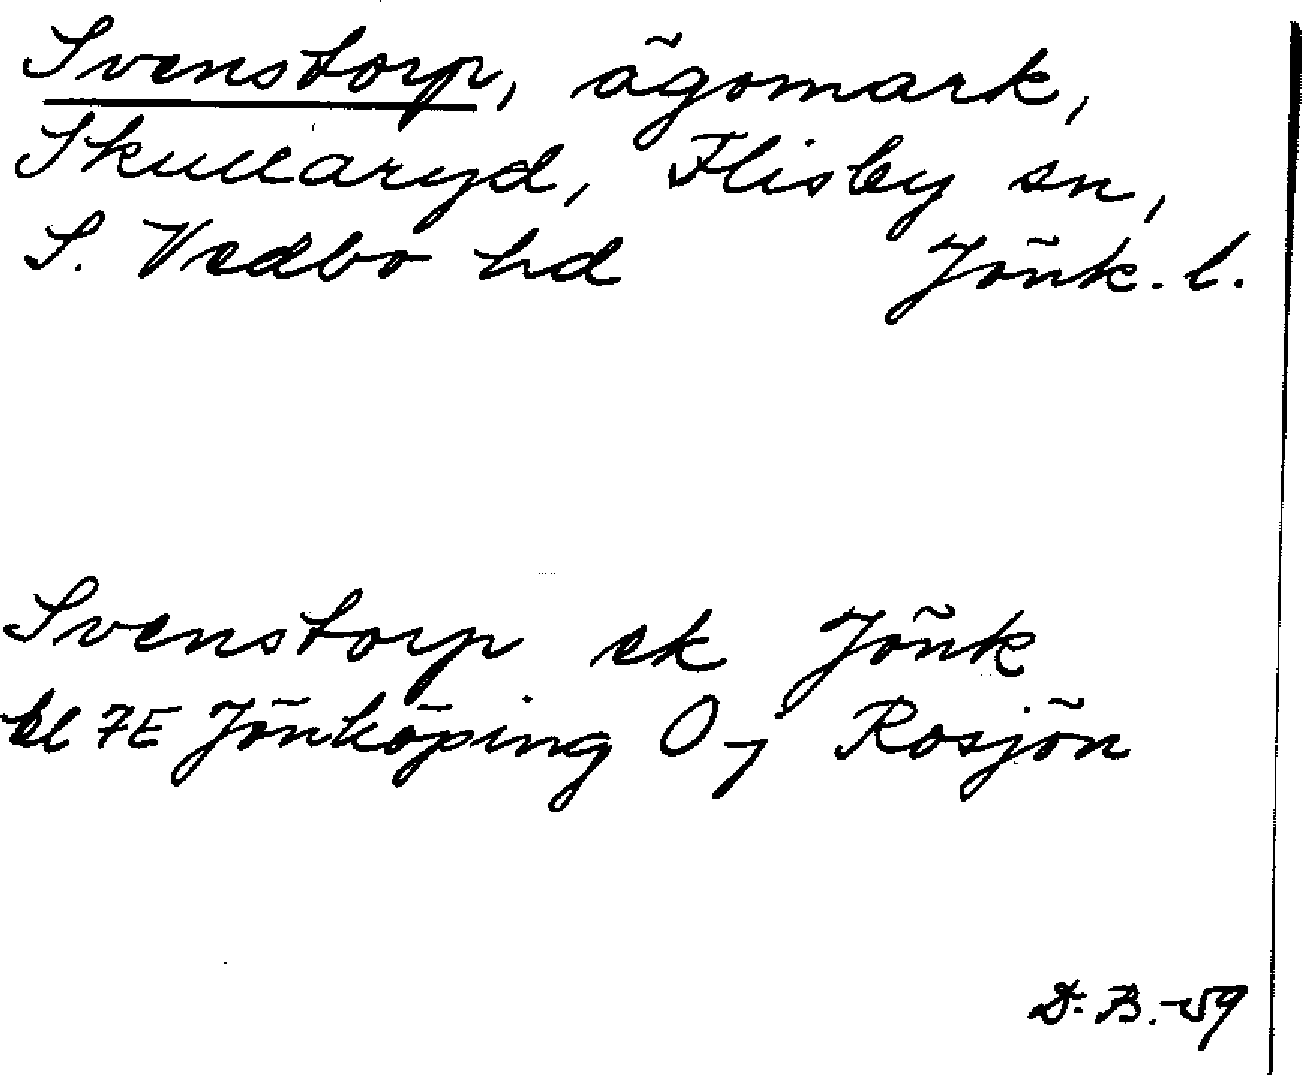 Svenstorp, ägomark,
Skullaryd, Flisby sn,
S. Vedbo hd Jönk. l.
Svenstorp ek Jönk
bl 7E Jönköping Oj Rosjön
D.B.-59